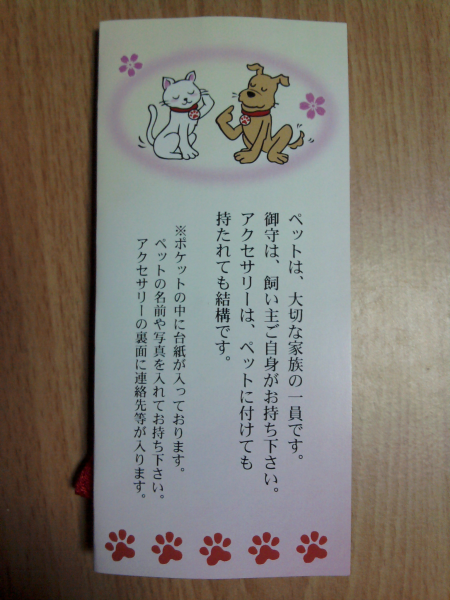 ペットは、大切な家族の一員です。
御守は、飼い主ご自身がお持ち下さい。
アクセサリーは、ペットに付けても
持たれても結構です。
※ポケットの中に台紙が入っております。
ペットの名前や写真を入れてお持ち下さい。
アクセサリーの裏面に連絡先等が入ります。